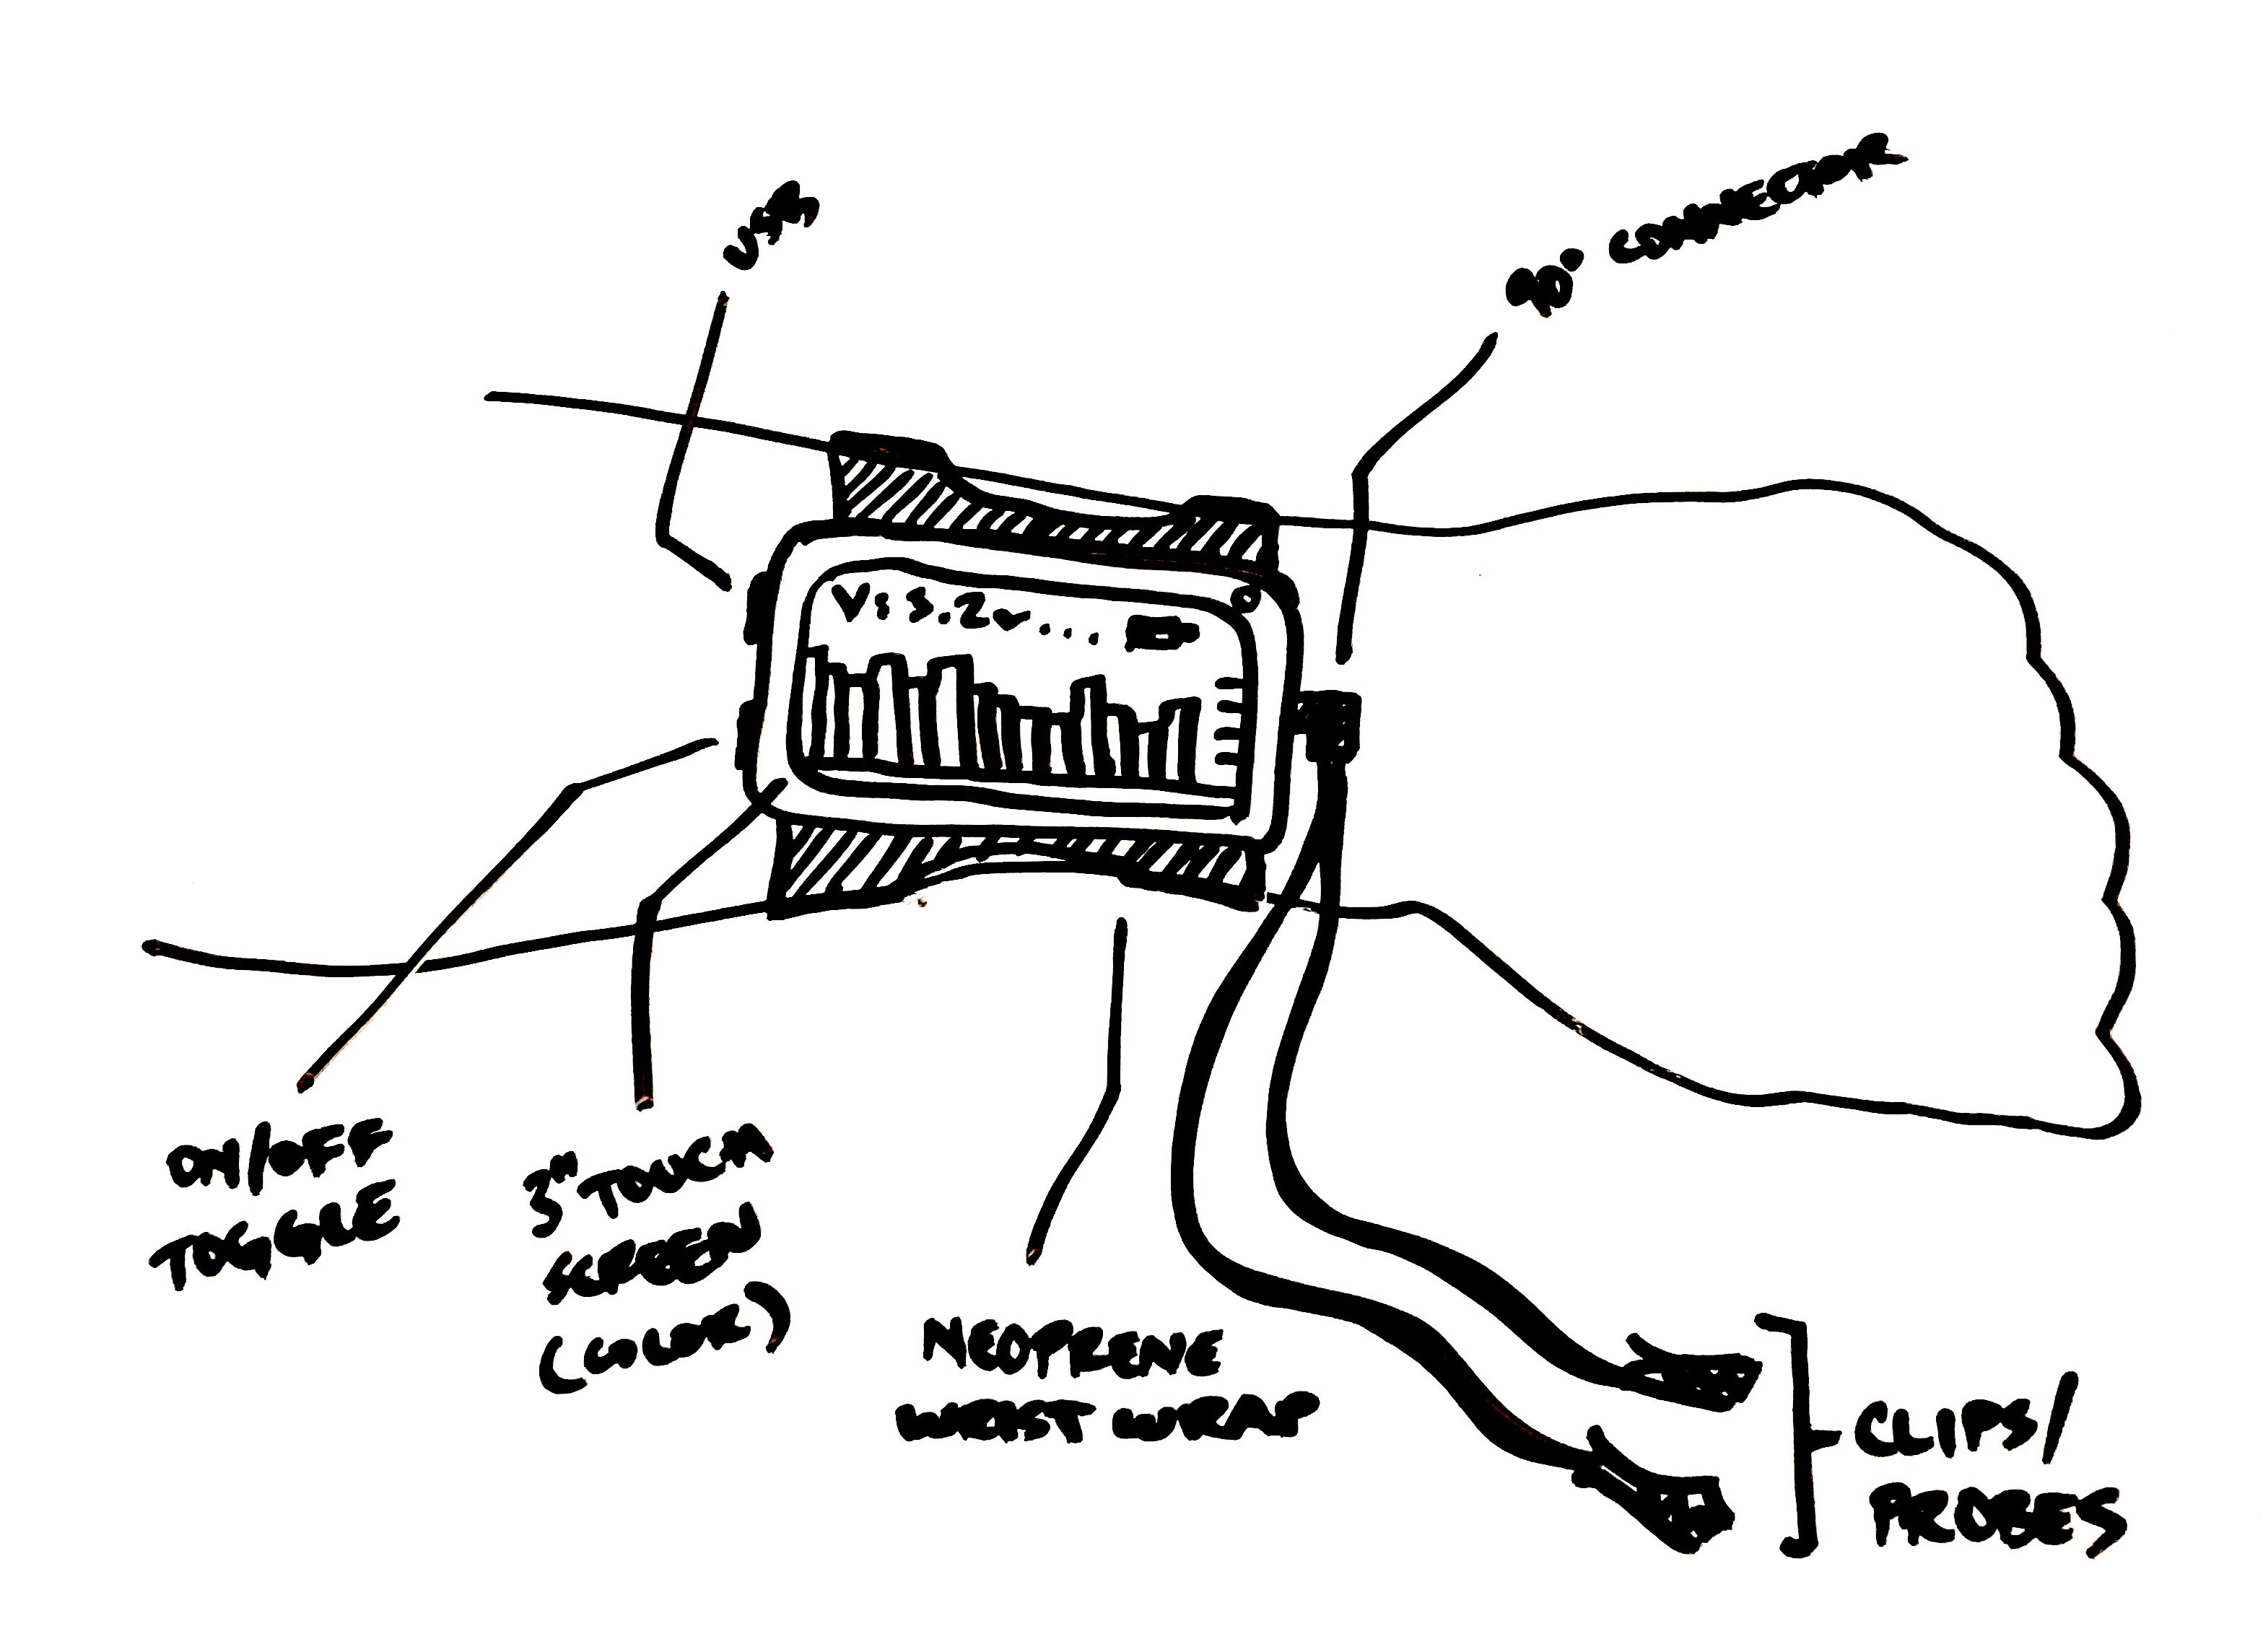 USB
90° CONNECTOR
V: 3.2V....
ON/OFF
TOGGLE
3" TOUCH
SCREEN
(COLOR)
NEOPRENE
WRIST WRAP
CLIPS/
PROBES